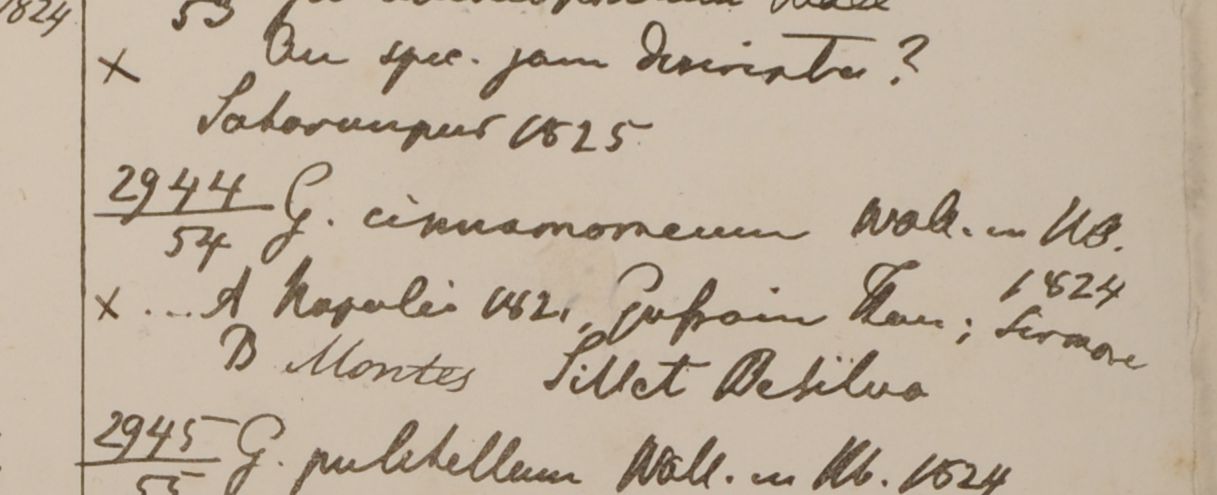 1824
53
× An spec. jam descripta?
Saharunpur 1825
2944 G. cinnamomeum Wall. in Hb.
54 1824
× ... A Napalia 1821, Gossain Than; Sirmore
B Montes Sillet De Silva
2945 G. pulchellum Wall. in Hb. 1824
55